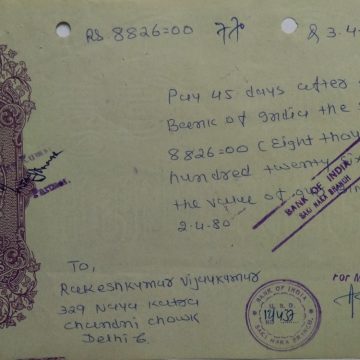 RS 8826=00
& 3.4
Pay 45 days after
Bank of India the
8826=00 (Eight thou
hundred twenty six
the value of
2.4.80
BANK OF INDIA
SAKI NAKA BRANCH
Partner
To,
Rakeshkumar Vijaykumar
329 Naya Katra
Chandni Chowk
Delhi 6.
BANK OF INDIA
SAKI NAKA BRANCH
For M